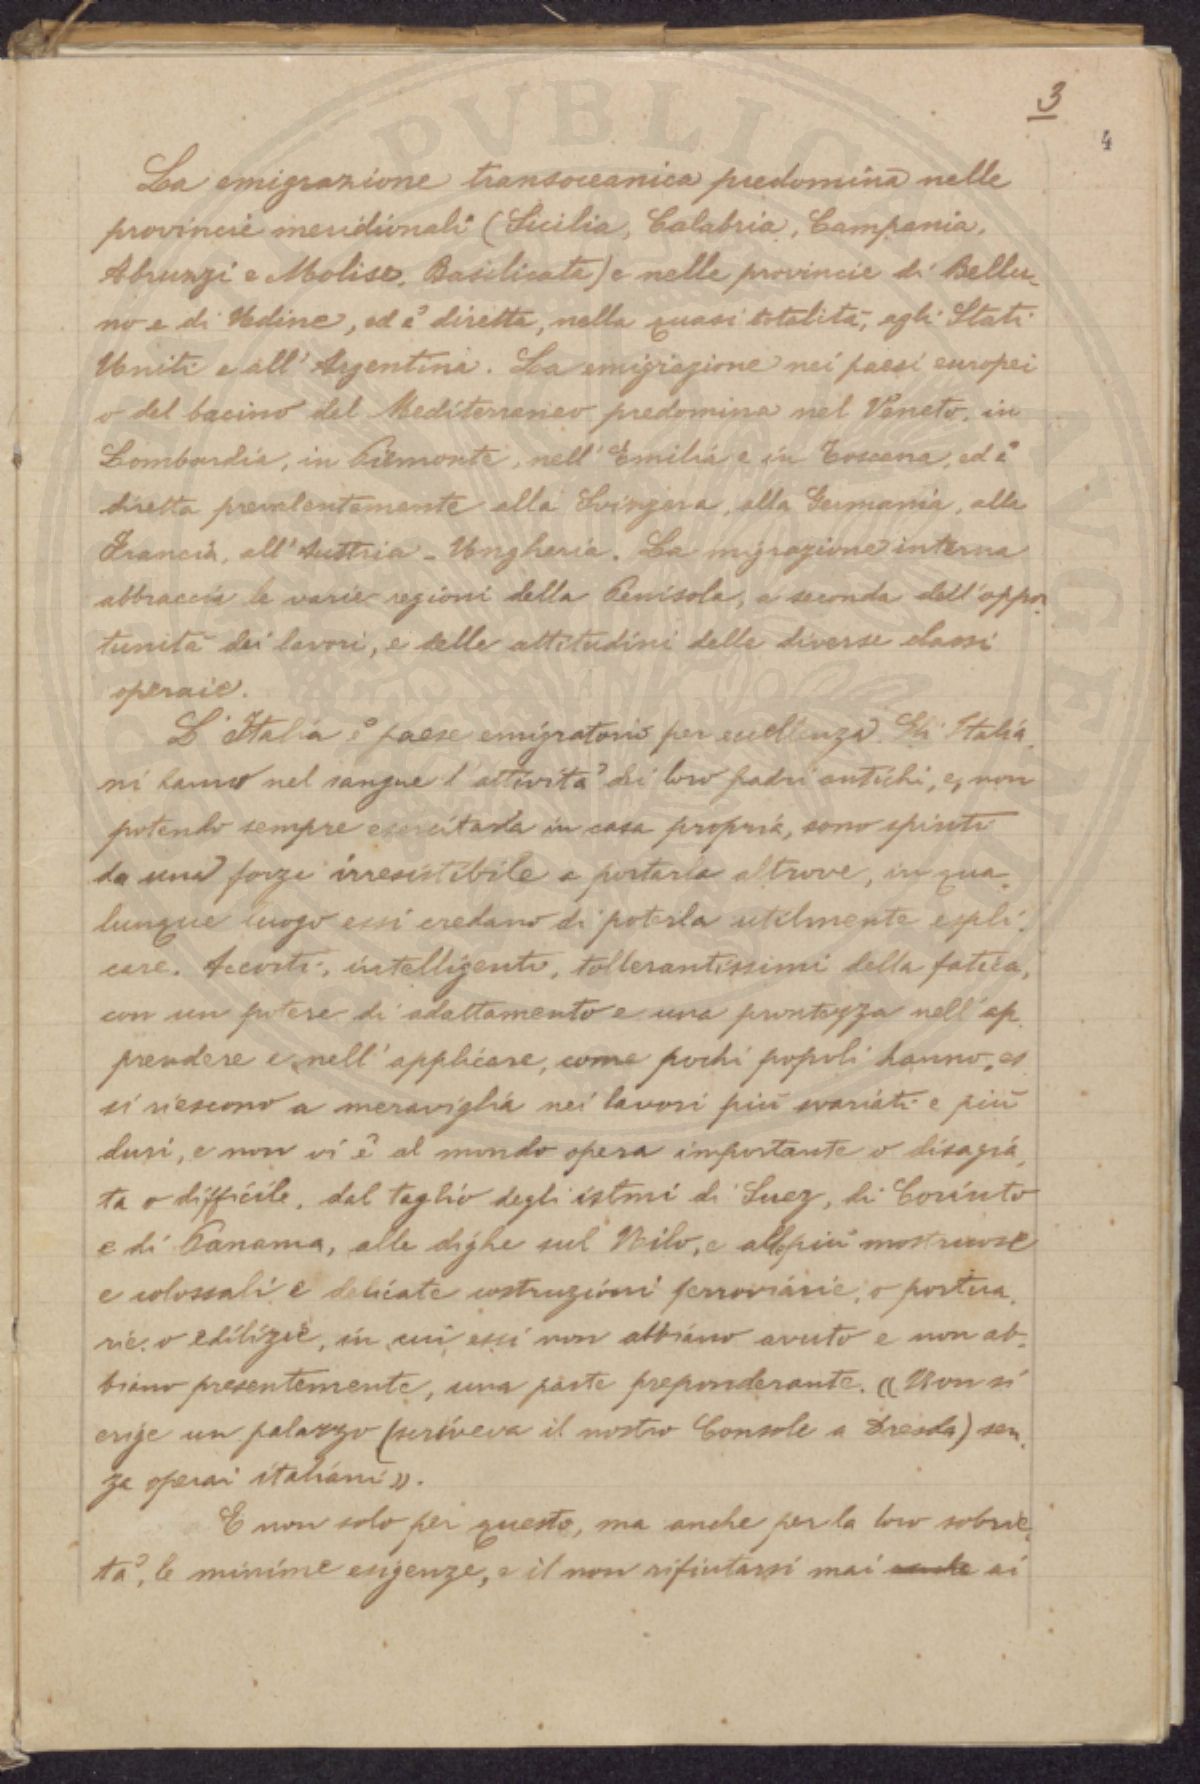 3
4
La emigrazione transoceanica predomina nelle
provincie meridionali (Sicilia, Calabria, Campania,
Abruzzi e Molise, Basilicata) e nelle provincie di Bellu-
no e di Udine, ed è diretta, nella quasi totalità, agli Stati
Uniti e all'Argentina. La emigrazione nei paesi europei
o del bacino del Mediterraneo predomina nel Veneto, in
Lombardia, in Piemonte, nell'Emilia e in Toscana, ed è
diretta prevalentemente alla Svizzera, alla Germania, alla
Francia, all'Austria-Ungheria. La migrazione interna
abbraccia le varie regioni della Penisola, a seconda dell'oppor-
tunità dei lavori, e delle attitudini delle diverse classi
operaie.
L'Italia è paese emigratorio per eccellenza. Gli Italia-
ni hanno nel sangue l'attività dei loro padri antichi, e, non
potendo sempre esercitarla in casa propria, sono spinti
da una forza irresistibile a portarla altrove, in qua-
lunque luogo essi credano di poterla utilmente espli-
care. Accorti, intelligenti, tollerantissimi della fatica,
con un potere di adattamento e una prontezza nell'ap-
prendere e nell'applicare, come pochi popoli hanno, es-
si riescono a meraviglia nei lavori più svariati e più
duri, e non vi è al mondo opera importante o disagia-
ta o difficile, dal taglio degli istmi di Suez, di Corinto
e di Panama, alle dighe sul Nilo, e alle più mostruose
e colossali e delicate costruzioni ferroviarie, o portua-
rie, o edilizie, in cui essi non abbiano avuto e non ab-
biano presentemente, una parte preponderante. «Non si
erige un palazzo (scriveva il nostro Console a Dresda) sen-
za operai italiani».
E non solo per questo, ma anche per la loro sobrie-
tà, le minime esigenze, e il non rifiutarsi mai anche ai
PVBLICA